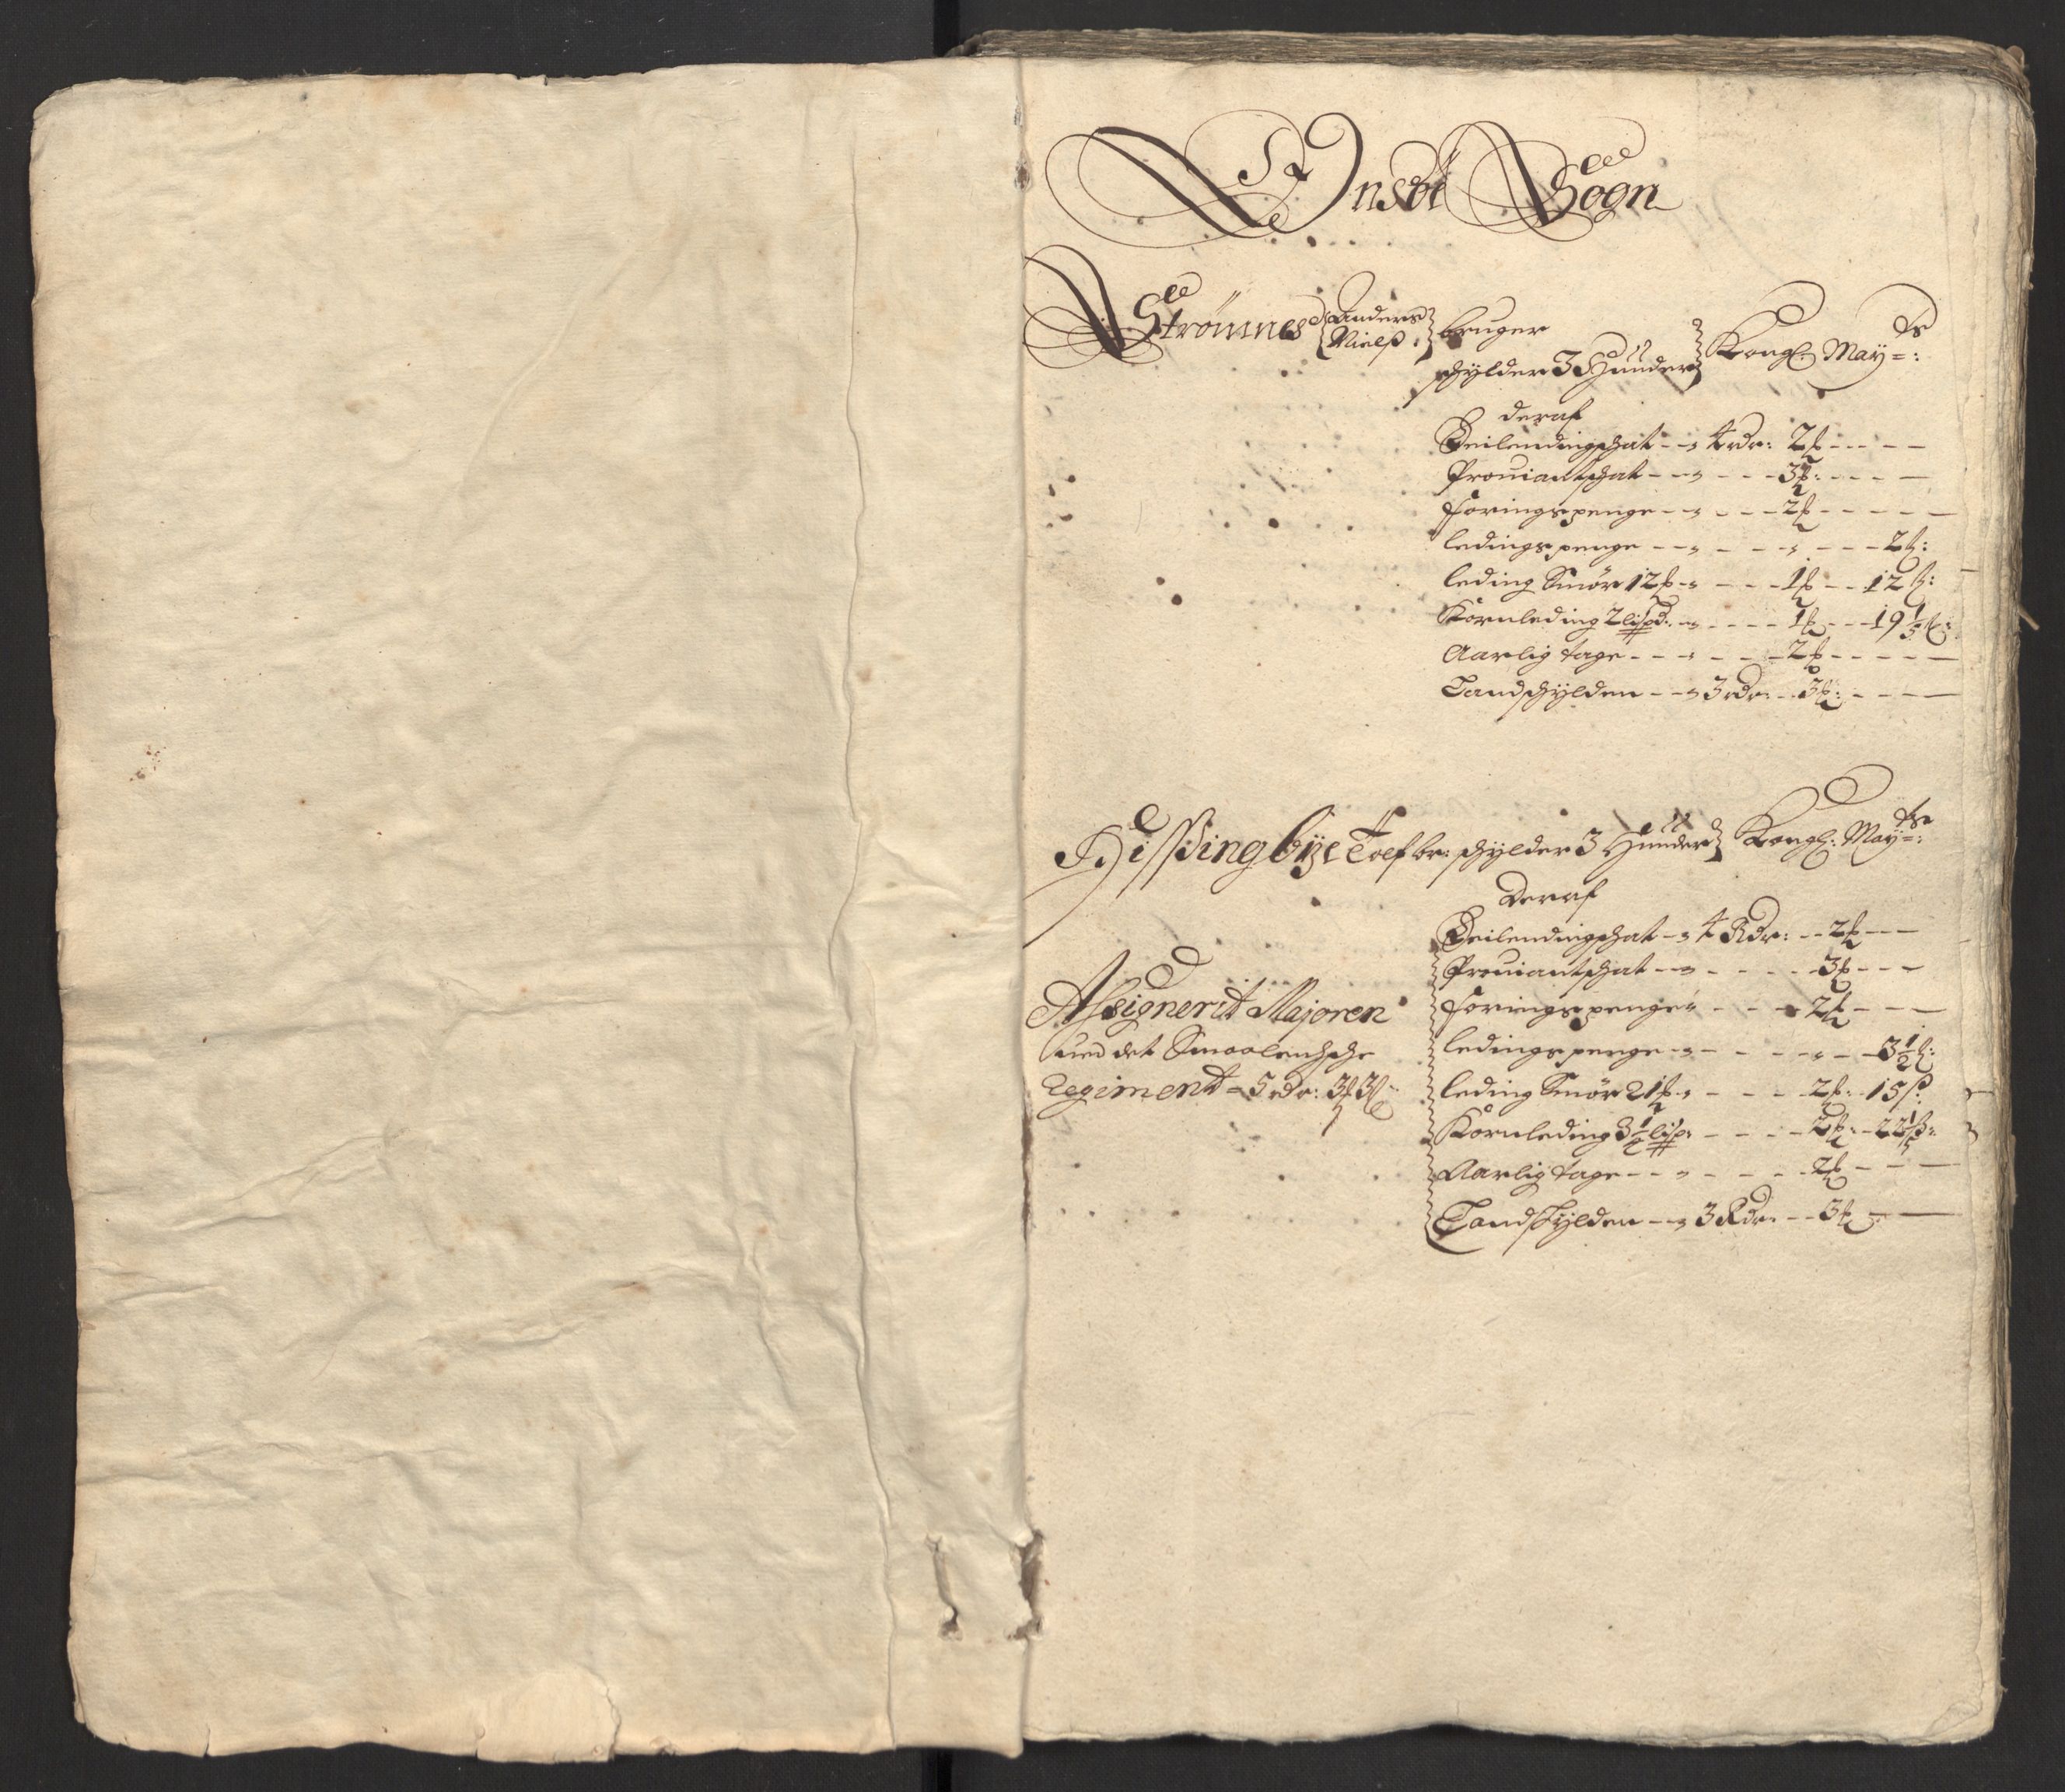 Onsøe Sogn
Strømnes Anders Nielß bruger
schylder 3 Hunder Kongl: Mayts:
deraf
Leilendingschat -- 4 rdr: 2 ƶ - - -
Prouiantschat -- - - - 3 ƶ: - - -
Foringspenge -- - - - 2 ƶ - - - -
ledingspenge -- - - - - - 2 ß:
leding Smør 12 ƶ - - - 1 ƶ -- 12 ß:
Kornleding 2 lispd: - - - - 1 ƶ -- 19 1/5 ß:
Aarlig tage - - - - - 2 ƶ - - - -
Landschylden -- 3 rdr: -- 3 ƶ: - - -
Hissingbye Tolf br: schylder 3 Hunder Kongl: Mayts:
deraf
Leilendingschat - 4 Rdr: -- 2 ƶ - - -
Prouiantschat -- - - - - 3 ƶ - - -
Foringspenge - - - 2 ƶ - - -
ledingspenge -- - - - - - 3 1/2 ß:
leding Smør 21 ƶ - - - 2 ƶ: 15 ß:
Kornleding 3 1/2 lisp: - - - 2 ƶ: -- 22 ß:
Aarlig tage - - - - - 2 ƶ - - -
Landschylden -- 3 Rdr: -- 3 ƶ: - -
Assignerit Majoren
ued det Smaalenshche
Regiment = 5 rdr: 3 ƶ 3 ß